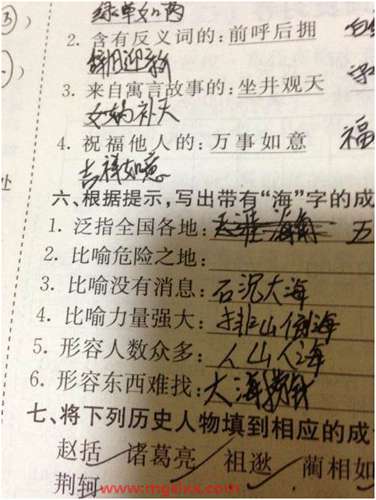 绿草如茵
2. 含有反义词的：前呼后拥
辞旧迎新
3. 来自寓言故事的：坐井观天
女娲补天
4. 祝福他人的：万事如意 福
吉祥如意
六、根据提示，写出带有“海”字的成
1. 泛指全国各地：天涯海角 五
2. 比喻危险之地：
3. 比喻没有消息：石沉大海
4. 比喻力量强大：排山倒海
5. 形容人数众多：人山人海
6. 形容东西难找：大海捞针
七、将下列历史人物填到相应的成
赵括 诸葛亮 祖逖 蔺相如
荆轲
www.mgslxx.com